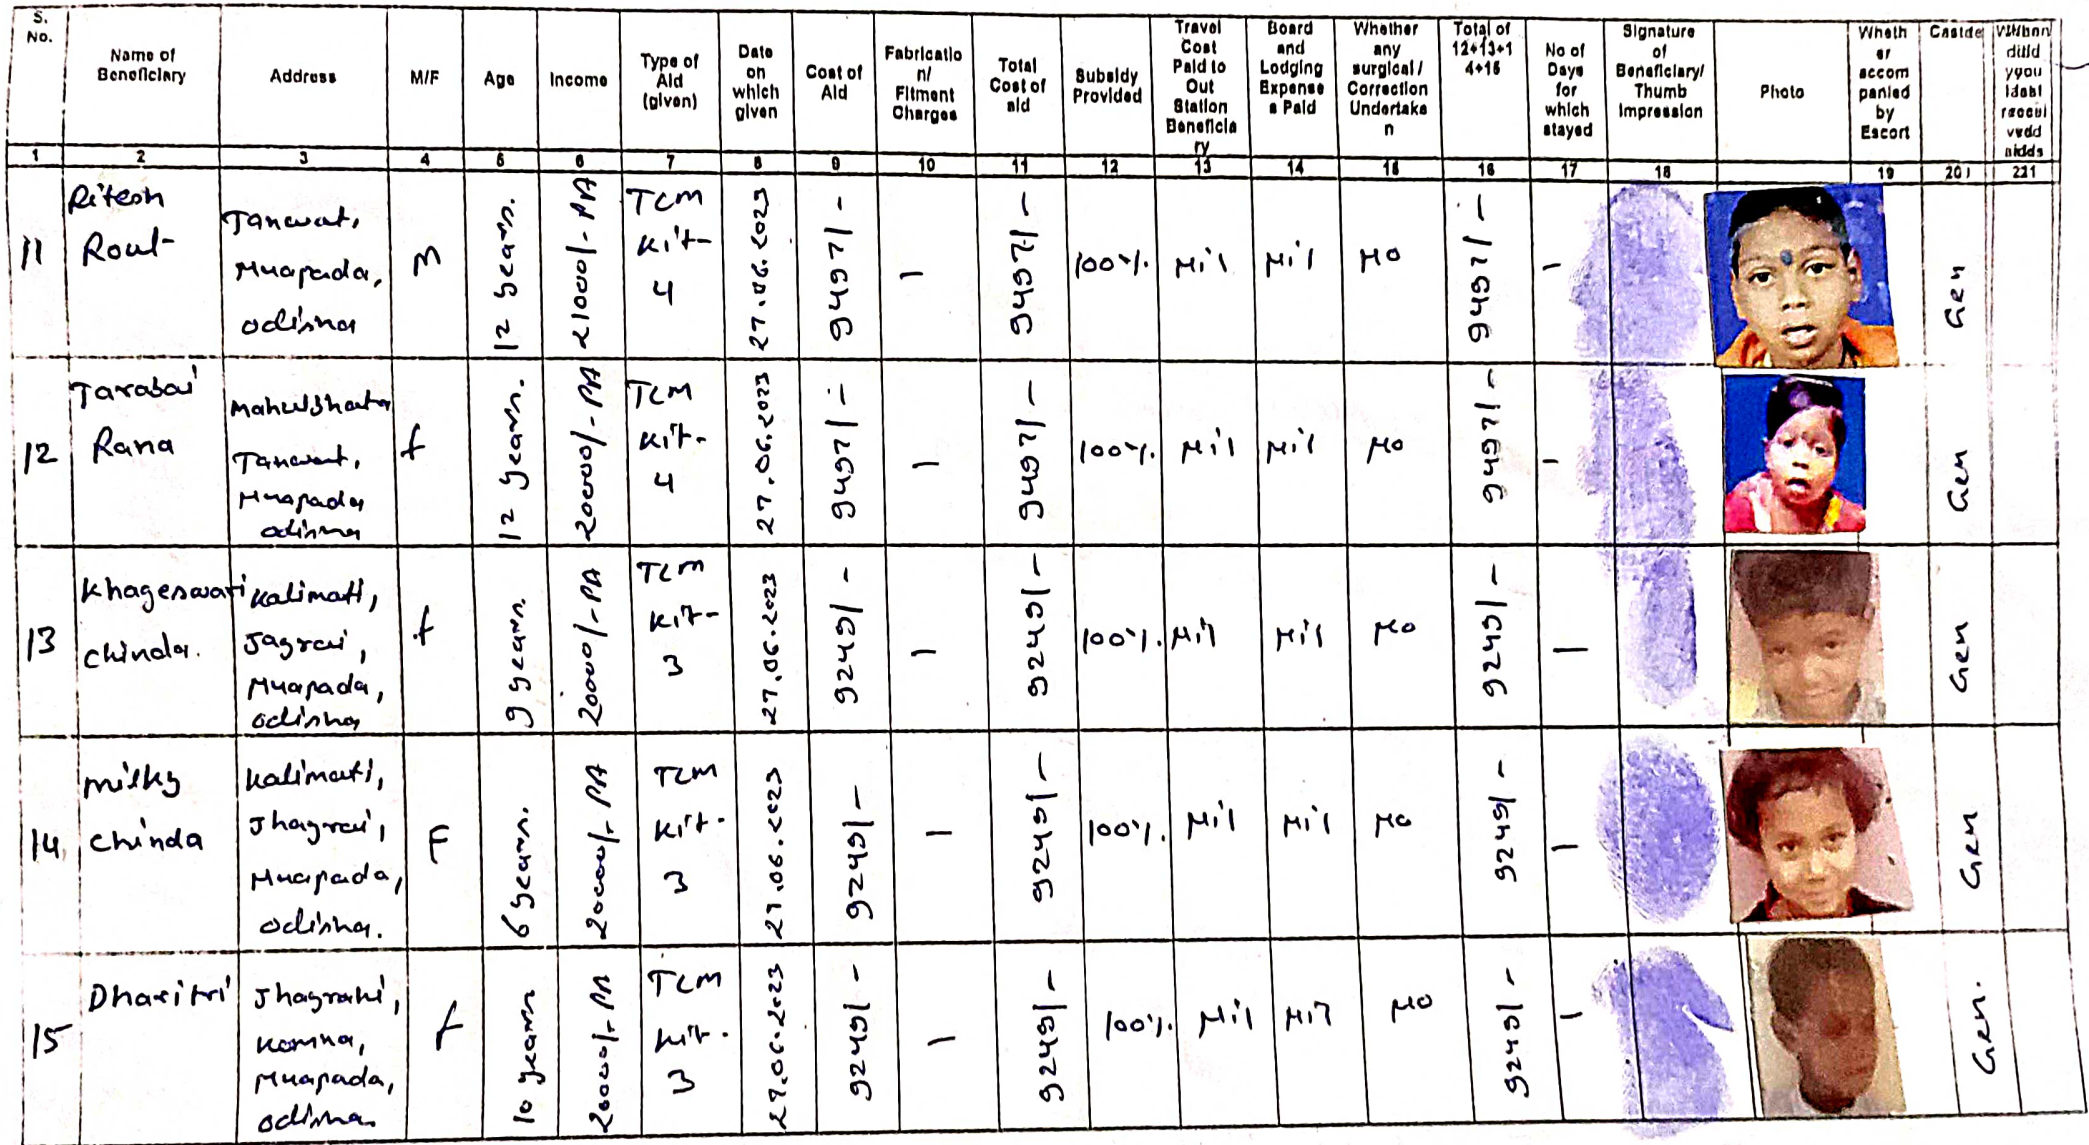 S. No. Name of Beneficiary Address M/F Age Income Type of Aid (given) Date on which given Cost of Aid Fabrication/ Fitment Charges Total Cost of aid Subsidy Provided Travel Cost Paid to Out Station Beneficiary Board and Lodging Expenses Paid Whether any surgical / Correction Undertaken Total of 12+13+14+15 No of Days for which stayed Signature of Beneficiary/ Thumb Impression Photo Whether accompanied by Escort
1 2 3 4 5 6 7 8 9 10 11 12 13 14 15 16 17 18 19 20 221
11 Ritesh Rout Tanwat, Nuapada, odisha M 12 years. 21000/- PA TLM Kit- 4 27.06.2023 9497/- - 9497/- 100%. Nil Nil No 9497/- - Gen
12 Tarabai Rana Tanwat, Nuapada odisha f 12 years. 20000/- PA TLM Kit- 4 27.06.2023 9497/- - 9497/- 100%. Nil Nil No 9497/- - Gen
13 Khageswari chinda. Kalimati, Jagrai, Nuapada, odisha f 9 years. 20000/- PA TLM Kit- 3 27.06.2023 9249/- - 9249/- 100%. Nil Nil No 9249/- - Gen
14 Milky chinda Kalimati, Jhagrai, Nuapada, odisha. F 6 years. 20000/- PA TLM Kit- 3 27.06.2023 9249/- - 9249/- 100%. Nil Nil No 9249/- - Gen
15 Dharitri Jhagrahi, Komna, Nuapada, odisha. f 10 years 20000/- PA TLM Kit- 3 27.06.2023 9249/- - 9249/- 100%. Nil Nil No 9249/- - Gen.